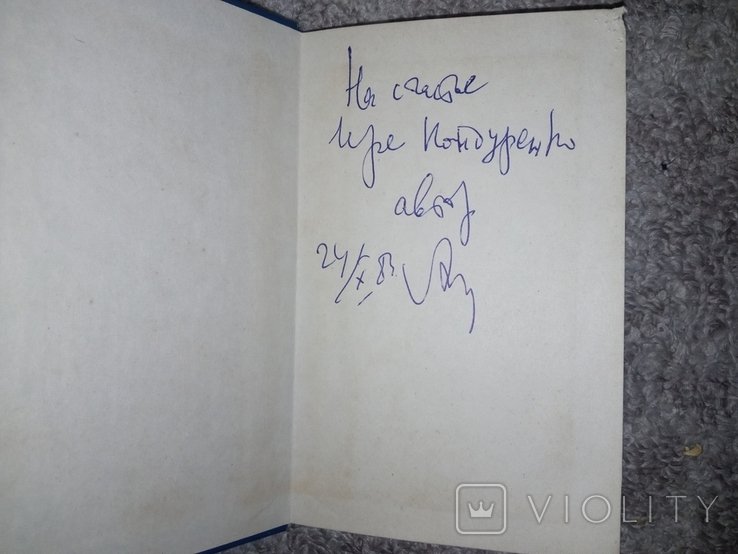 На счастье
Ире Кондуренко
автор
24/X 83
VIOLITY